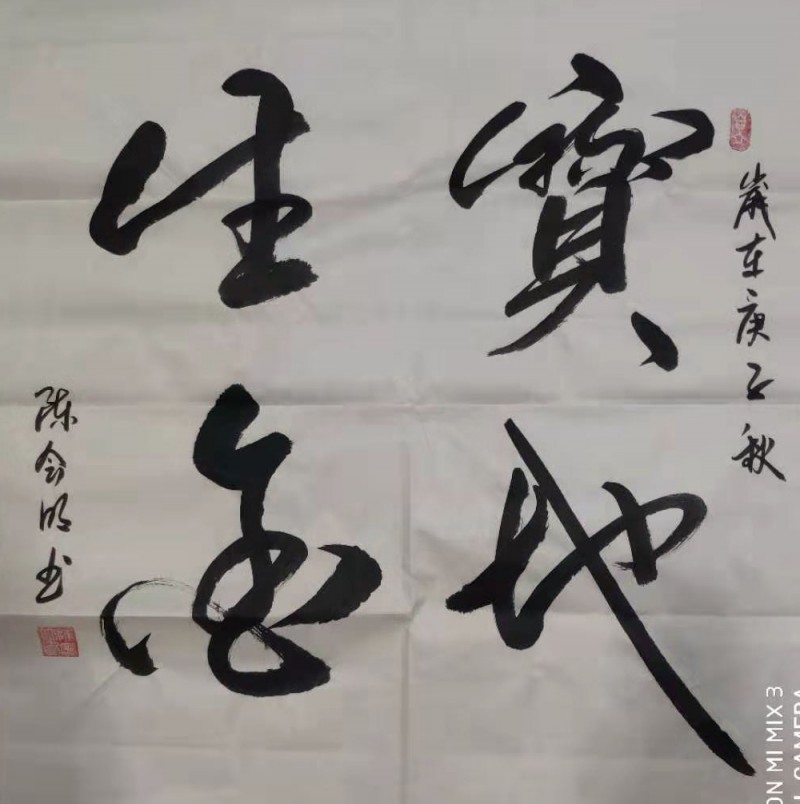 歲在庚子秋
寶地
生金
陈会明书
ON MI MIX 3
CAMERA